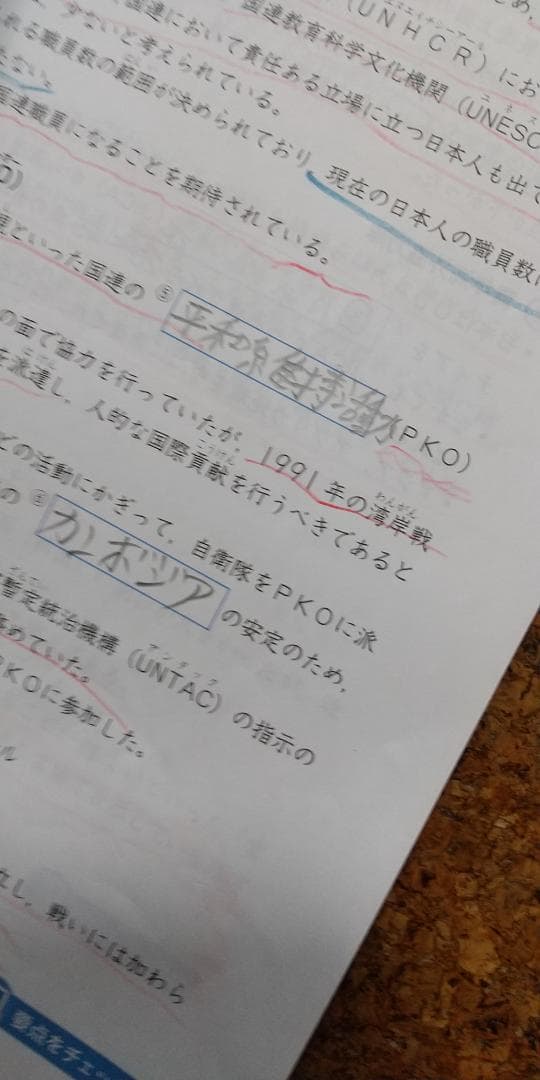 (UNHCR)にお
、国連教育科学文化機関(UNESC
、少ないと考えられている。
国連において責任ある立場に立つ日本人も出て
れる職員数の範囲が決められており、現在の日本人の職員数
ない
国連職員になることを期待されている。
O)
といった国連の⑤平和維持活動(PKO)
の面で協力を行っていたが、1991年の湾岸戦
わんがん
を派遣し、人的な国際貢献を行うべきであると
こうけん
どの活動にかぎって、自衛隊をPKOに派
の⑥カンボジアの安定のため、
暫定統治機構(UNTAC)の指示の
ざんてい
アンタック
めていた。
PKOに参加した。
ル
し、戦いには加わら
要点をチェ